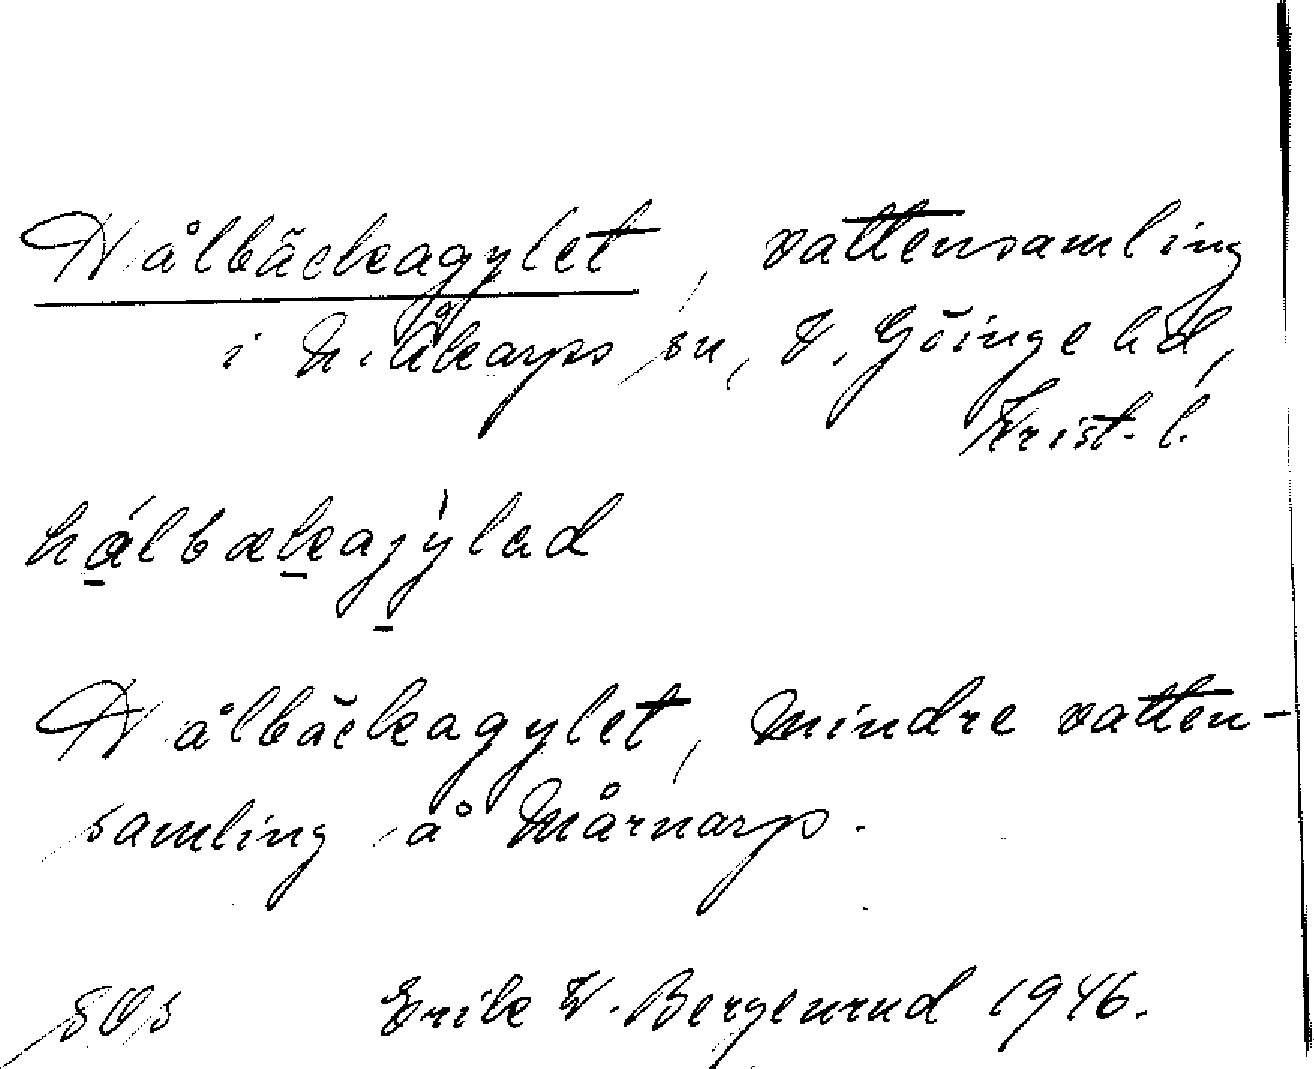 Hålbäckagylet, vattensamling
i N. Åkarps sn, V. Göinge hd,
Krist. l.
hálbækagýlad
Hålbäckagylet, mindre vatten-
samling å Mårnarp.
SOS Erik W. Bergenrud 1946.